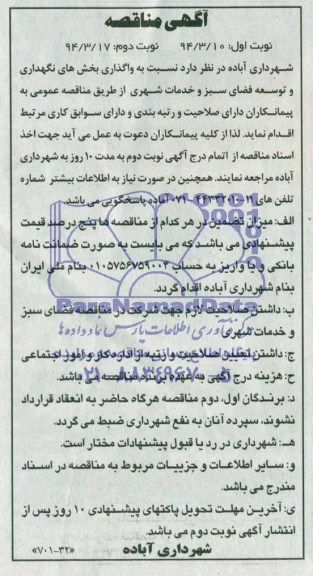 آگهی مناقصه
نوبت اول: ۹۴/۳/۱۰ نوبت دوم: ۹۴/۳/۱۷
شهرداری آباده در نظر دارد نسبت به واگذاری بخش های نگهداری
و توسعه فضای سبز و خدمات شهری از طریق مناقصه عمومی به
پیمانکاران دارای صلاحیت و رتبه بندی و دارای سوابق کاری مرتبط
اقدام نماید. لذا از کلیه پیمانکاران دعوت به عمل می آید جهت اخذ
اسناد مناقصه از اتمام درج آگهی نوبت دوم به مدت ۱۰ روز به شهرداری
آباده مراجعه نمایند. همچنین در صورت نیاز به اطلاعات بیشتر شماره
تلفن های آباده پاسخگویی می باشد.
الف: میزان تضمین در هر کدام از مناقصه ها پنج درصد قیمت
پیشنهادی می باشد که می بایست به صورت ضمانت نامه
بانکی و یا واریز به حساب ۰۱۰۵۷۵۶۷۵۹۰۰۳ بنام ملی ایران
بنام شهرداری آباده اقدام گردد.
ب: داشتن صلاحیت لازم جهت شرکت در مناقصه فضای سبز
و خدمات شهری
ج: داشتن تعیین صلاحیت و رتبه از اداره کار و امور اجتماعی
ح: هزینه درج آگهی به عهده برنده مناقصه می باشد.
د: برندگان اول، دوم مناقصه هرگاه حاضر به انعقاد قرارداد
نشوند، سپرده آنان به نفع شهرداری ضبط می گردد.
هـ: شهرداری در رد یا قبول پیشنهادات مختار است.
و: سایر اطلاعات و جزییات مربوط به مناقصه در اسناد
مندرج می باشد.
ی: آخرین مهلت تحویل پاکتهای پیشنهادی ۱۰ روز پس از
انتشار آگهی نوبت دوم می باشد.
شهرداری آباده «۷۰۱-۳۲»
ParsNamadData
۰۲۱-۸۸۳۴۹۶۷۰